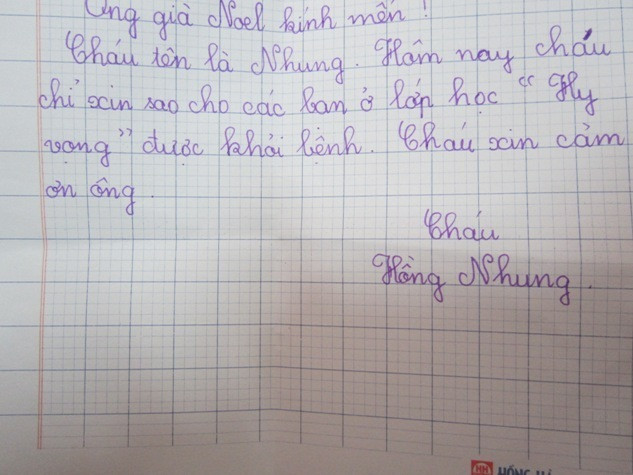 Ông già Noel kính mến!
Cháu tên là Nhung. Hôm nay cháu
chỉ xin sao cho các bạn ở lớp học "Hy
vọng" được khỏi bệnh. Cháu xin cảm
ơn ông.
Cháu
Hồng Nhung.